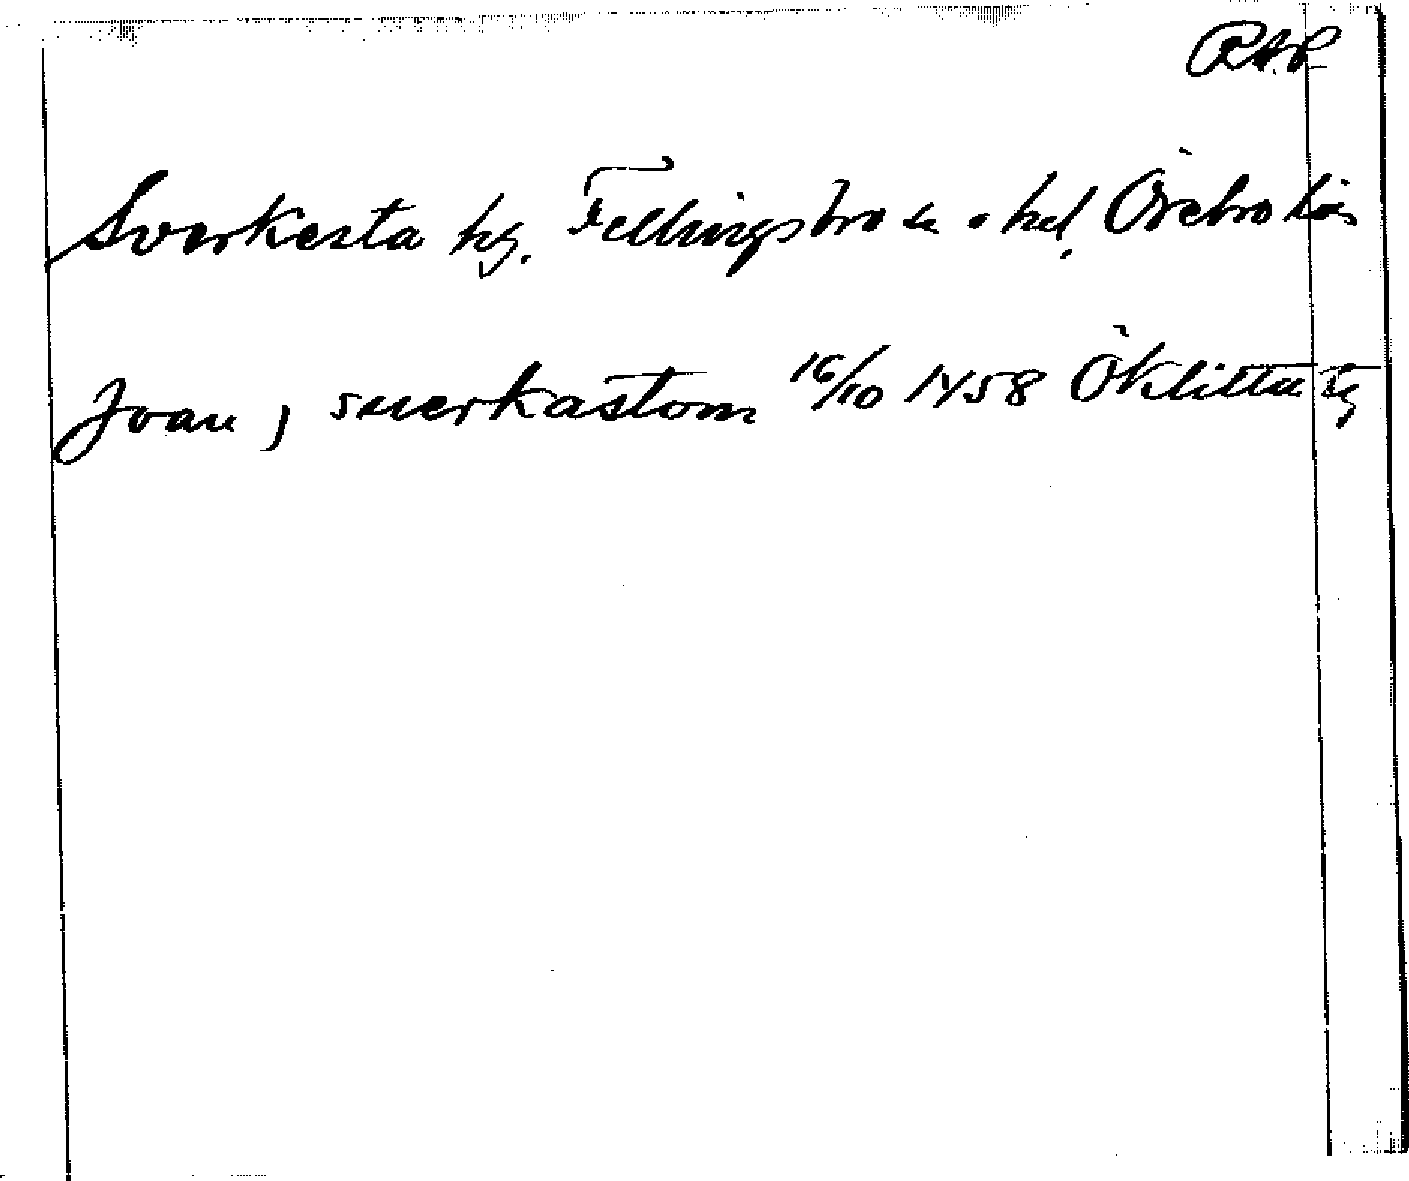 RAP
Sverkesta hg. Fellingsbro sn o hd, Örebro län
Joan j suerkastom 16/10 1458 Öklitta